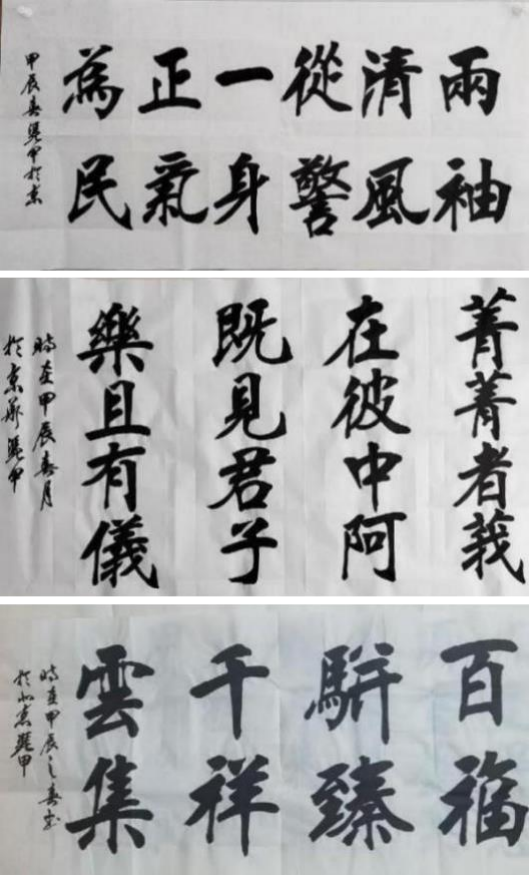 兩袖
清風
從警
一身
正氣
為民
甲辰春 甲於京
菁菁者莪
在彼中阿
既見君子
樂且有儀
時在甲辰春月
於京 甲
百福
駢臻
千祥
雲集
時在甲辰之春
於北京 甲